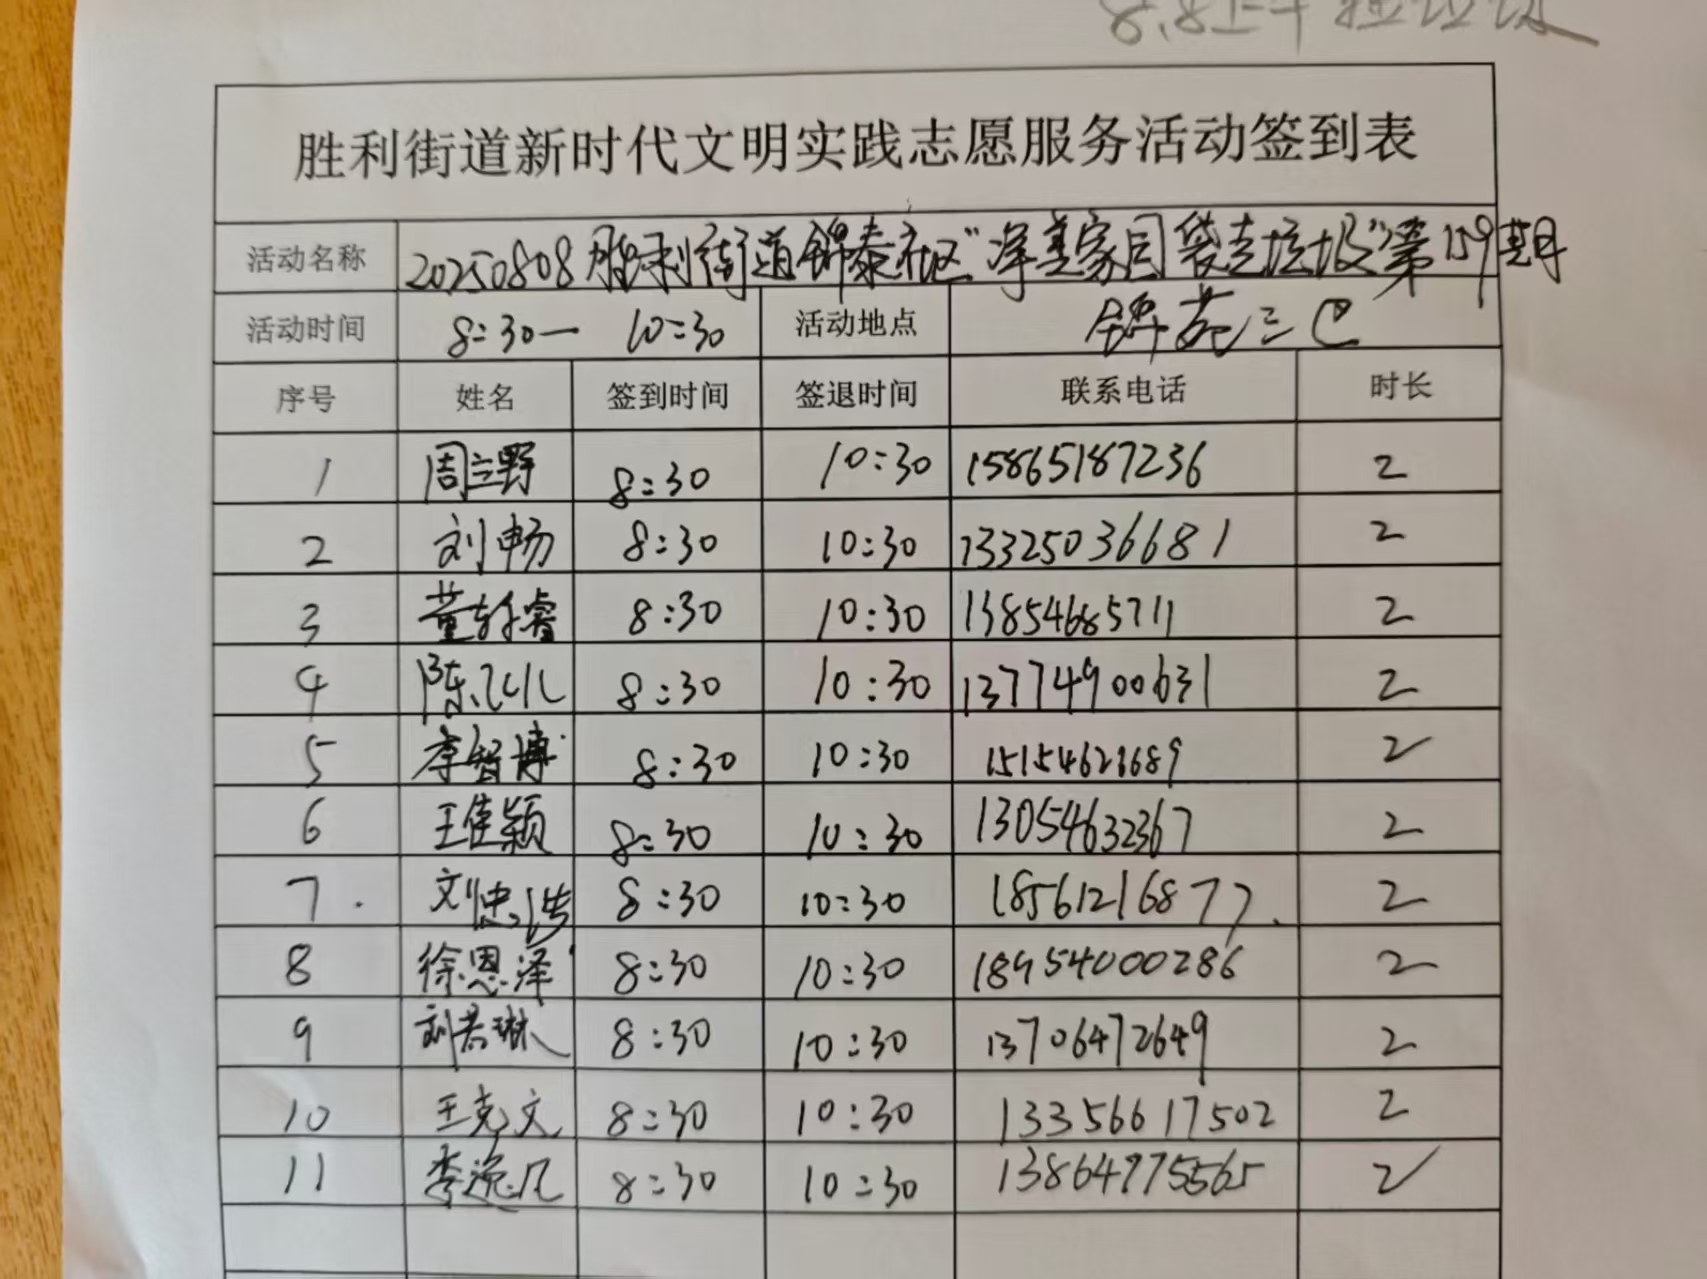 8.8上午 捡垃圾
胜利街道新时代文明实践志愿服务活动签到表
活动名称 20250808胜利街道锦泰社区"净美家园 袋走垃圾"第159期
活动时间 8:30— 10:30 活动地点 锦苑三区
序号 姓名 签到时间 签退时间 联系电话 时长
1 周立野 8:30 10:30 15865187236 2
2 刘畅 8:30 10:30 13325036681 2
3 董轩睿 8:30 10:30 13854685711 2
4 陈 8:30 10:30 13774900631 2
5 李智博 8:30 10:30 15154621689 2
6 王佳颖 8:30 10:30 13054632367 2
7. 刘忠涛 8:30 10:30 18561216877. 2
8 徐恩泽 8:30 10:30 18954000286 2
9 刘芸琳 8:30 10:30 13706472649 2
10 王克文 8:30 10:30 13356617502 2
11 李逸凡 8:30 10:30 13864775565 2